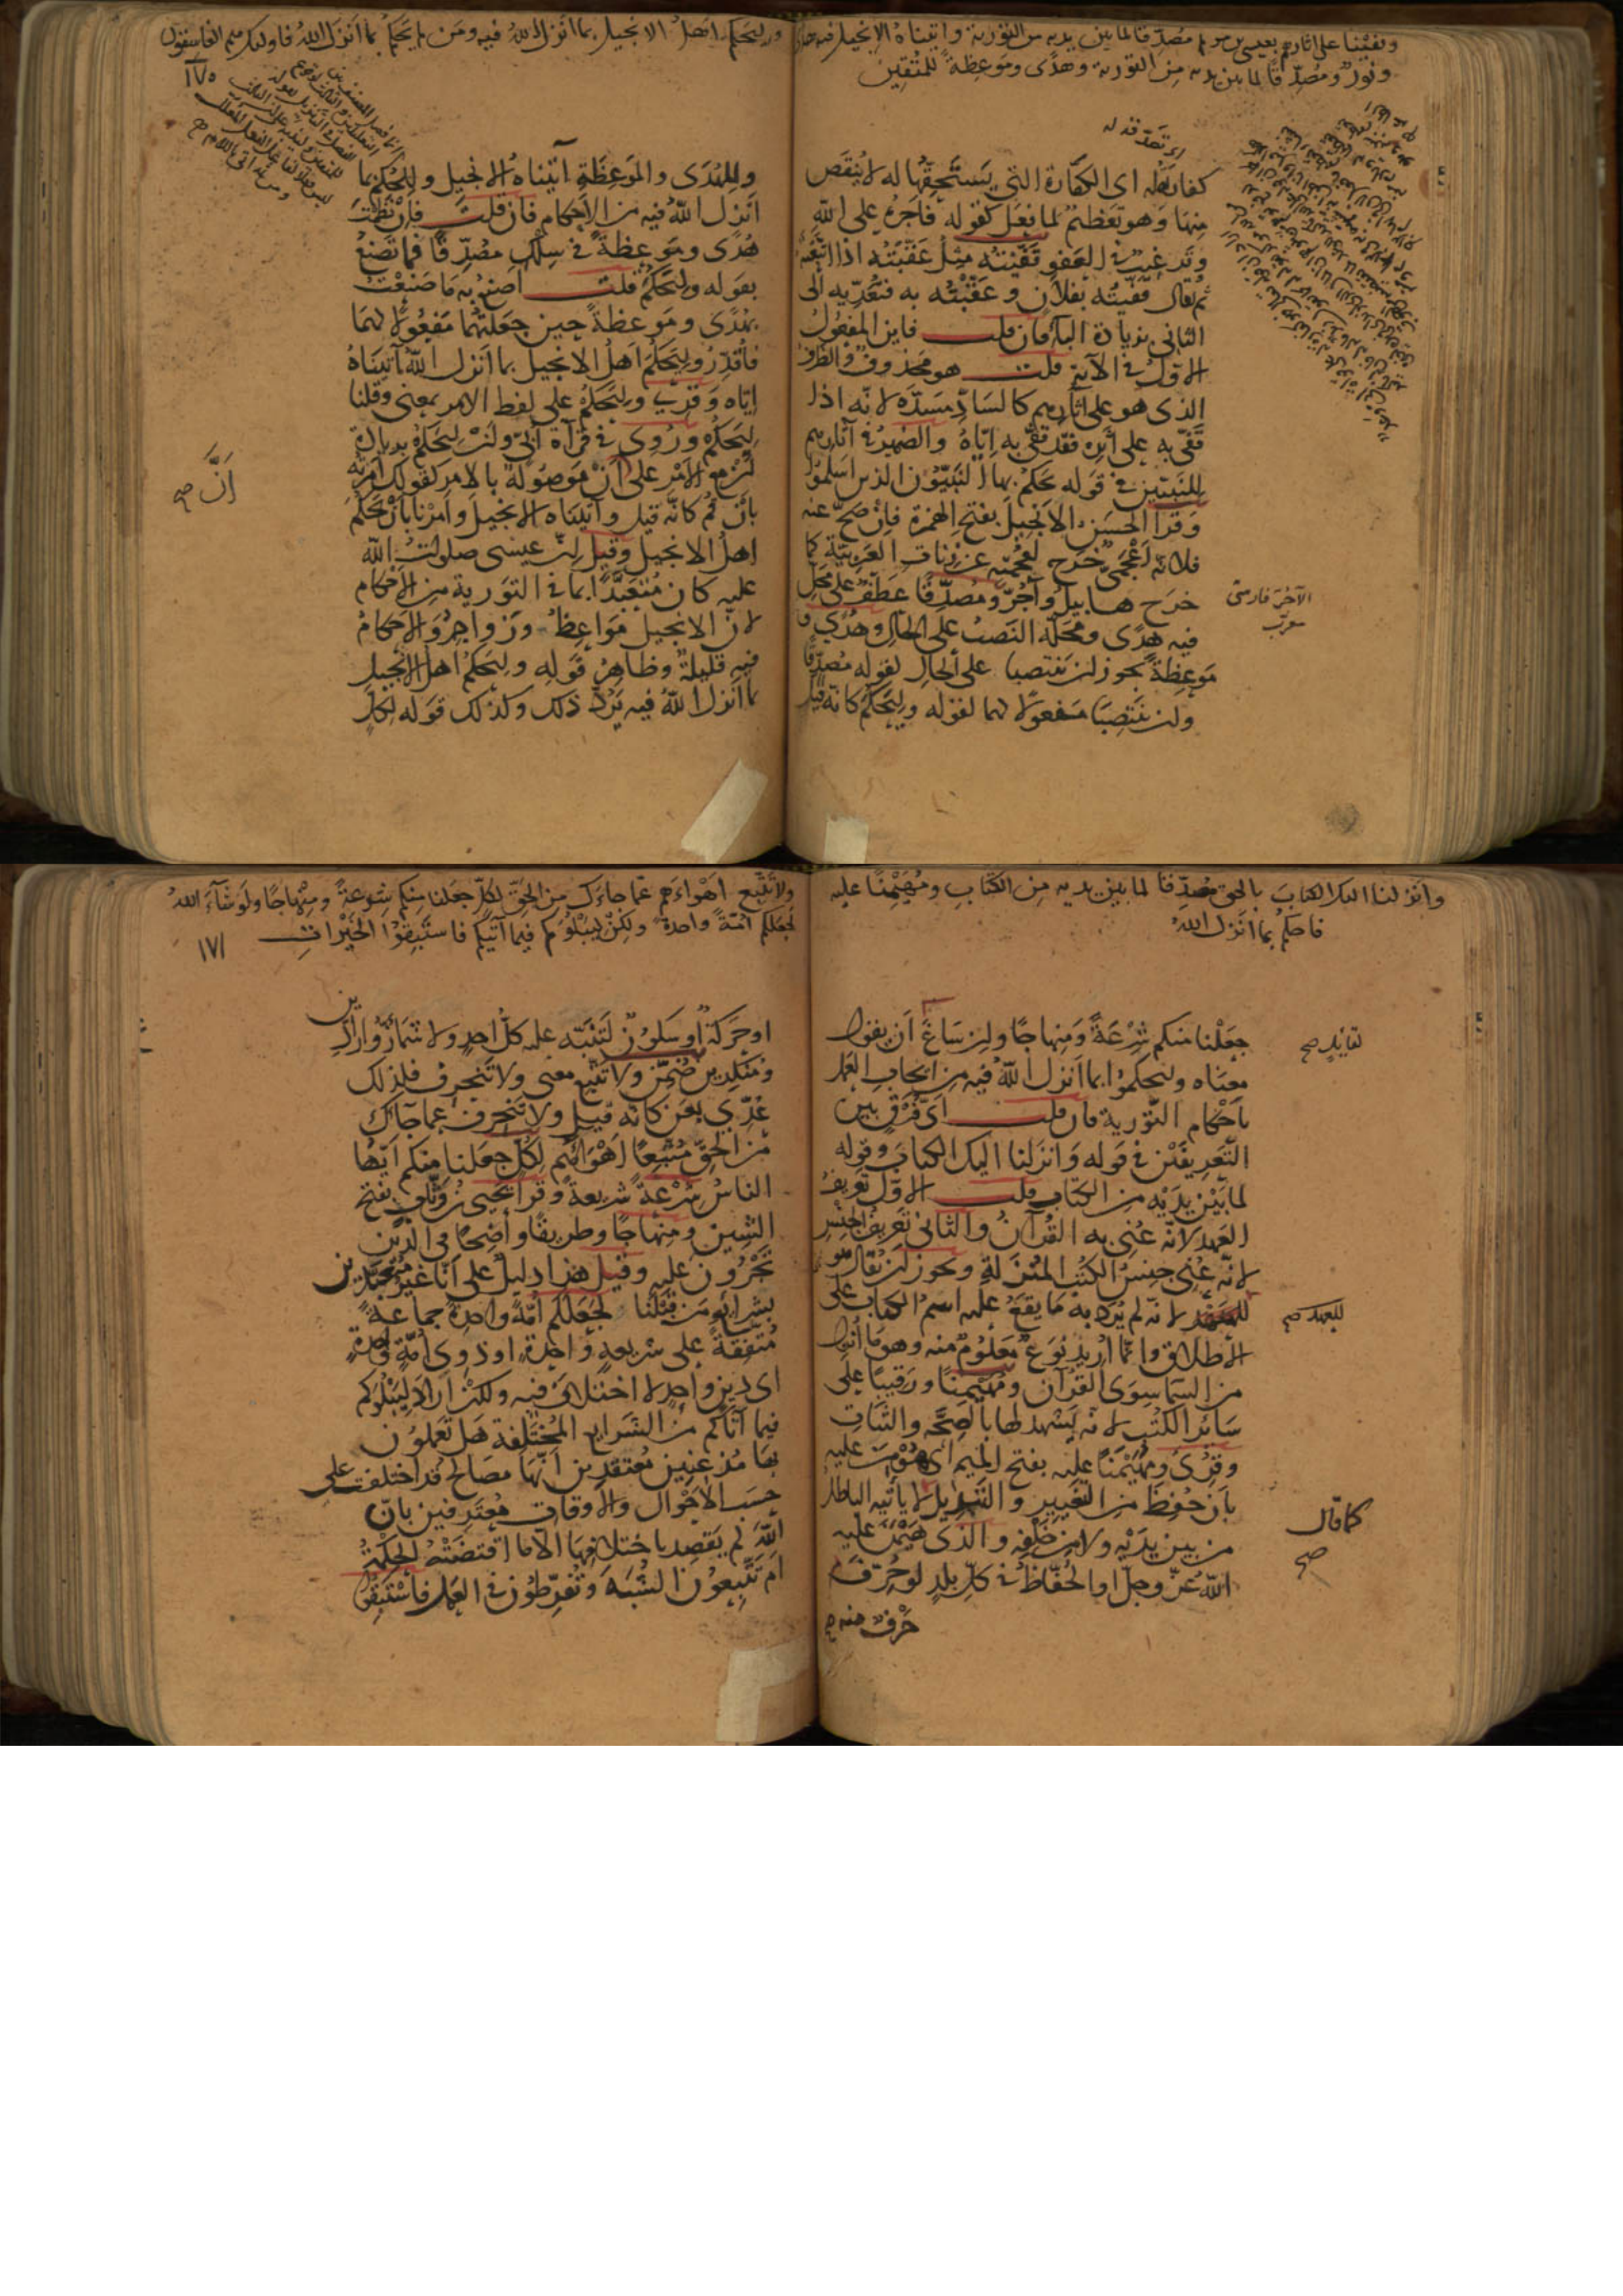 وقفينا على اثارهم بعيسى بن مريم مصدقا لما بين يديه من التورية وآتيناه الانجيل فيه هدى
ونور ومصدقا لما بين يديه من التورية وهدى وموعظة للمتقين
كفارة له اى الكفارة التى يستحقها له لا ينقص
منها وهو تعظيم لما فعل كقوله فاجره على الله
وترغيب فى العفو قفيته مثل عقبته اذا اتبعته
ثم يقال قفيته بفلان وعقبته به فتعديه الى
الثانى بزيادة الباء فان قلت فاين المفعول
الاول فى الآية قلت هو محذوف والظرف
الذى هو على آثارهم كالساد مسده لانه اذا
قفى به على اثره فقد قفى به اياه والضمير فى آثارهم
للنبيين فى قوله يحكم بها النبيون الذين اسلموا
وقرأ الحسن الانجيل بفتح الهمزة فان صح عنه
فلانه اعجمى خرج لعجمته عن زنات العربية كما
خرج هابيل وآجر ومصدقا عطف على محل
فيه هدى ومحله النصب على الحال وهدى و
موعظة يجوز ان ينتصبا على الحال لقوله مصدقا
وان ينتصبا مفعولا لهما لقوله وليحكم كانه قيل
الآجر فارسى
معرب
وليحكم اهل الانجيل بما انزل الله فيه ومن لم يحكم بما انزل الله فاولئك هم الفاسقون
١٧٥
وللهدى والموعظة آتيناه الانجيل وللحكم بما
انزل الله فيه من الاحكام فان قلت فان نظمت
هدى وموعظة فى سلك مصدقا فما تصنع
بقوله وليحكم قلت اصنع به ما صنعت
بهدى وموعظة حين جعلتهما مفعولا لهما
فاقدر وليحكم اهل الانجيل بما انزل الله آتيناه
اياه وقرئ وليحكم على لفظ الامر بمعنى وقلنا
ليحكم وروى فى قرآة ابى وان ليحكم بزيادة
ان مع الامر على ان موصولة بالامر كقولك امرته
بان قم كانه قيل وآتيناه الانجيل وامرنا بان يحكم
اهل الانجيل وقيل ان عيسى صلوات الله
عليه كان متعبدا بما فى التورية من الاحكام
لان الانجيل مواعظ وزواجر والاحكام
فيه قليلة وظاهر قوله وليحكم اهل الانجيل
بما انزل الله فيه يرد ذلك وكذلك قوله لكل
اَنَّ صح
وانزلنا اليك الكتاب بالحق مصدقا لما بين يديه من الكتاب ومهيمنا عليه
فاحكم بما انزل الله
جعلنا منكم شرعة ومنهاجا وان ساغ ان يقول
معناه وليحكموا بما انزل الله فيه من ايجاب العمل
باحكام التورية فان قلت اى فرق بين
التعريفين فى قوله وانزلنا اليك الكتاب وقوله
لما بين يديه من الكتاب قلت الاول تعريف
العهد لانه عنى به القرآن والثانى تعريف الجنس
لانه عنى جنس الكتب المنزلة ويجوز ان يقال هو
للعهد لانه لم يرد به ما يقع عليه اسم الكتاب على
الاطلاق وانما اريد نوع معلوم منه وهو ما انزل
من السما سوى القرآن ومهيمنا ورقيبا على
سائر الكتب لانه يشهد لها بالصحة والثبات
وقرئ ومهيمنا عليه بفتح الميم اى هومن عليه
بان حفظ من التغيير والتبديل لا يأتيه الباطل
من بين يديه ولا من خلفه والذى هيمن عليه
الله عز وجل او الحفاظ فى كل بلد لو حرف
حرف منه
للعهد صح
كما قال
صح
ولا تتبع اهواءهم عما جاءك من الحق لكل جعلنا منكم شرعة ومنهاجا ولو شآء الله
لجعلكم امة واحدة ولكن ليبلوكم فيما آتيكم فاستبقوا الخيرات
١٧١
او حركة او سكون لتنبه عليه كل احد ولاشمأزوا رادين
ومنكرين ضمن ولا تتبع معنى ولا تنحرف فلذلك
عدى بعن كانه قيل ولا تنحرف عما جاءك
من الحق متبعا اهوائهم لكل جعلنا منكم ايها
الناس شرعة شريعة وقرأ يحيى بن وثاب بفتح
الشين ومنهاجا وطريقا واضحا فى الدين
تجرون عليه وقيل هذا دليل على انا غير متعبدين
بشرائع من قبلنا لجعلكم امة واحدة جماعة
متفقة على شريعة واحدة او ذوى امة واحدة
اى دين واحد لا اختلاف فيه ولكن اراد ليبلوكم
فيما آتاكم من الشرايع المختلفة هل تعملون
بها مذعنين معتقدين انها مصالح قد اختلفت على
حسب الاحوال والاوقات معترفين بان
الله لم يقصد باختلافها الا ما اقتضته الحكمة
ام تتبعون الشبه وتفرطون فى العمل فاستبقوا